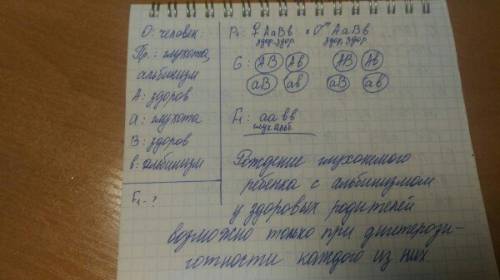 О: человек
Пр.: глухота,
альбинизм
А: здоров
а: глухота
В: здоров
в: альбинизм
F₁ - ?
P: ♀ АаВв х ♂ АаВв
здор. здор. здор. здор.
G: АВ Ав АВ Ав
аВ ав аВ ав
F₁: аавв
глух. альб.
Рождение глухонемого
ребенка с альбинизмом
у здоровых родителей
возможно только при дигетерози-
готности каждого из них